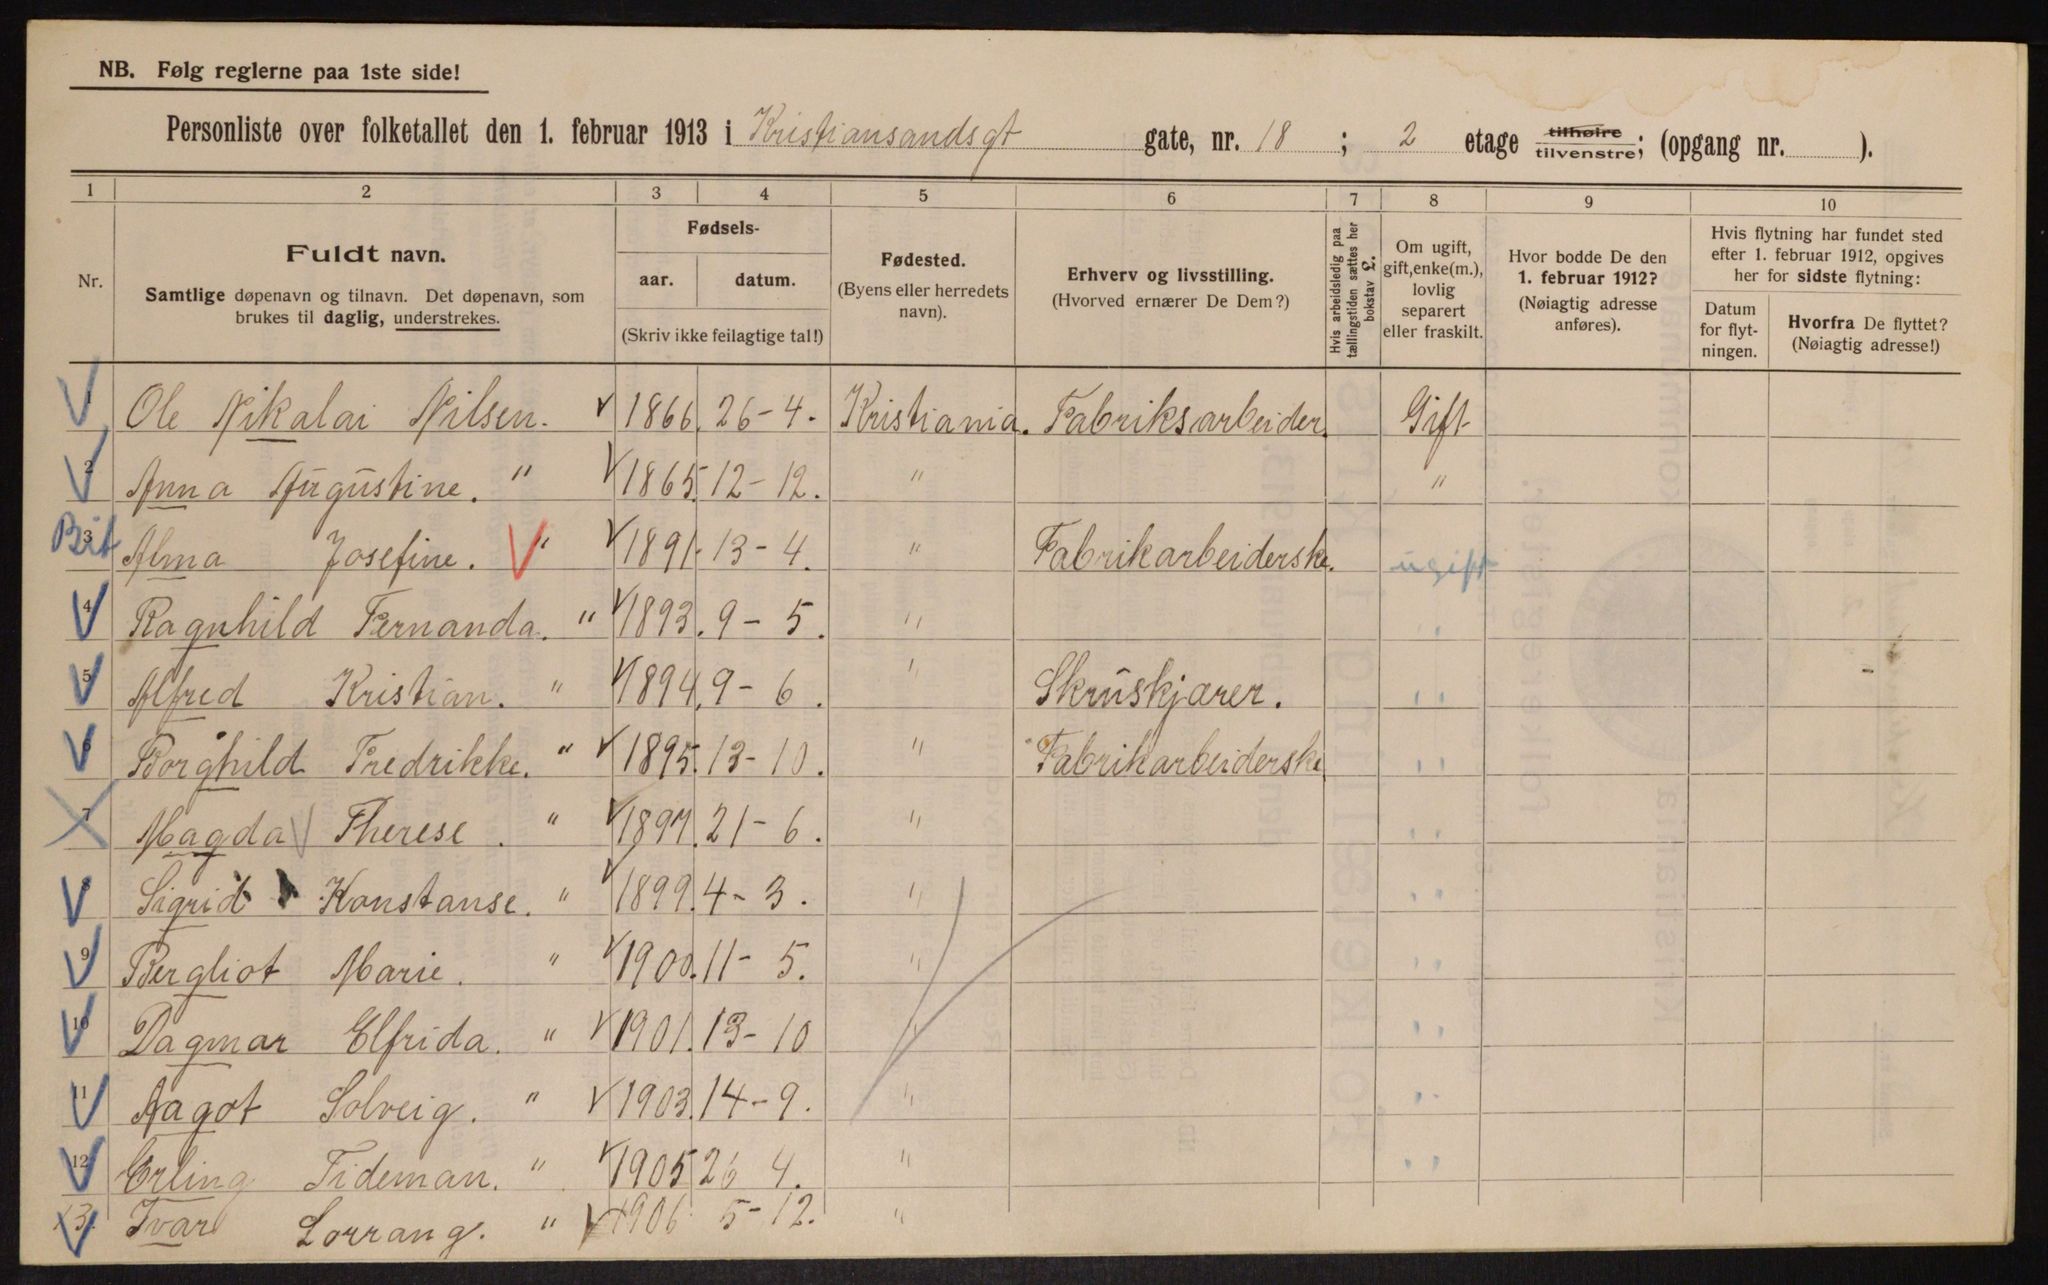 NB. Følg reglerne paa 1ste side!
Personliste over folketallet den 1. februar 1913 i Kristiansandsgt gate, nr. 18 ; 2 etage tilhøire tilvenstre; (opgang nr. ).
1 2 3 4 5 6 7 8 9 10
Nr.
Fuldt navn.
Samtlige døpenavn og tilnavn. Det døpenavn, som
brukes til daglig, understrekes.
Fødsels-
aar. datum.
(Skriv ikke feilagtige tal!)
Fødested.
(Byens eller herredets
navn).
Erhverv og livsstilling.
(Hvorved ernærer De Dem?)
Hvis arbeidsledig paa
tællingstiden sættes her
bokstav £.
Om ugift,
gift, enke(m.),
lovlig
separert
eller fraskilt.
Hvor bodde De den
1. februar 1912?
(Nøiagtig adresse
anføres).
Hvis flytning har fundet sted
efter 1. februar 1912, opgives
her for sidste flytning:
Datum
for flyt-
ningen.
Hvorfra De flyttet?
(Nøiagtig adresse!)
1 Ole Nikalai Nilsen. 1866. 26-4. Kristiania. Fabriksarbeider. Gift
2 Anna Augustine. " 1865. 12-12. " "
3 Alma Josefine. " 1891. 13-4. " Fabrikarbeiderske. ugift
4 Ragnhild Fernanda. " 1893. 9-5. " "
5 Alfred Kristian. " 1894. 9-6. " Skruskjærer. "
6 Borghild Fredrikke. " 1895. 13-10. " Fabrikarbeiderske "
7 Magda Therese. " 1897. 21-6. " "
8 Sigrid Konstanse. " 1899. 4-3. " "
9 Bergliot Marie. " 1900. 11-5. " "
10 Dagmar Elfrida. " 1901. 13-10 " "
11 Aagot Solveig. " 1903. 14-9. " "
12 Erling Tideman. " 1905 26 4. " "
13. Ivar Lorrang. " 1906 5-12. "